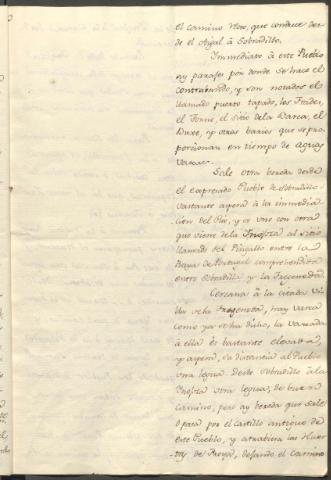 el camino Real, que conduce des-
de el Ojal à Sobradillo.
Inmediato à este Pueblo
ay parajes por donde se hace el
contrabando, y son notados el
llamado puerto tapado, los Freiles,
el Torno, el sitio de la Barca, el
Duxo, y otros barios que se pro-
porcionan en tiempo de aguas
Varas.
Sale otra bereda desde
el expresado Pueblo de Sobradillo
vastante aspera à la inmedia-
cion del Rio, y se vne con otra
que viene de la Inojosa al sitio
llamado del entre la
Raya de Portugal comprehendida
entre Sobradillo y la Fregeneda.
Cercana à la citada Vi-
lla de la Fregeneda, hay varca
como ya se ha dicho, la vajada
à ella es bastante elevada,
y aspera, su distancia al Pueblo
una legua. Desde Sobradillo à la
Inojosa otra legua, de buen
camino, pero ay bereda que sale
ò pasa por el Castillo antiguo de
este Pueblo, y atrabiesa las Huer-
tas de Froya, dejando el camino